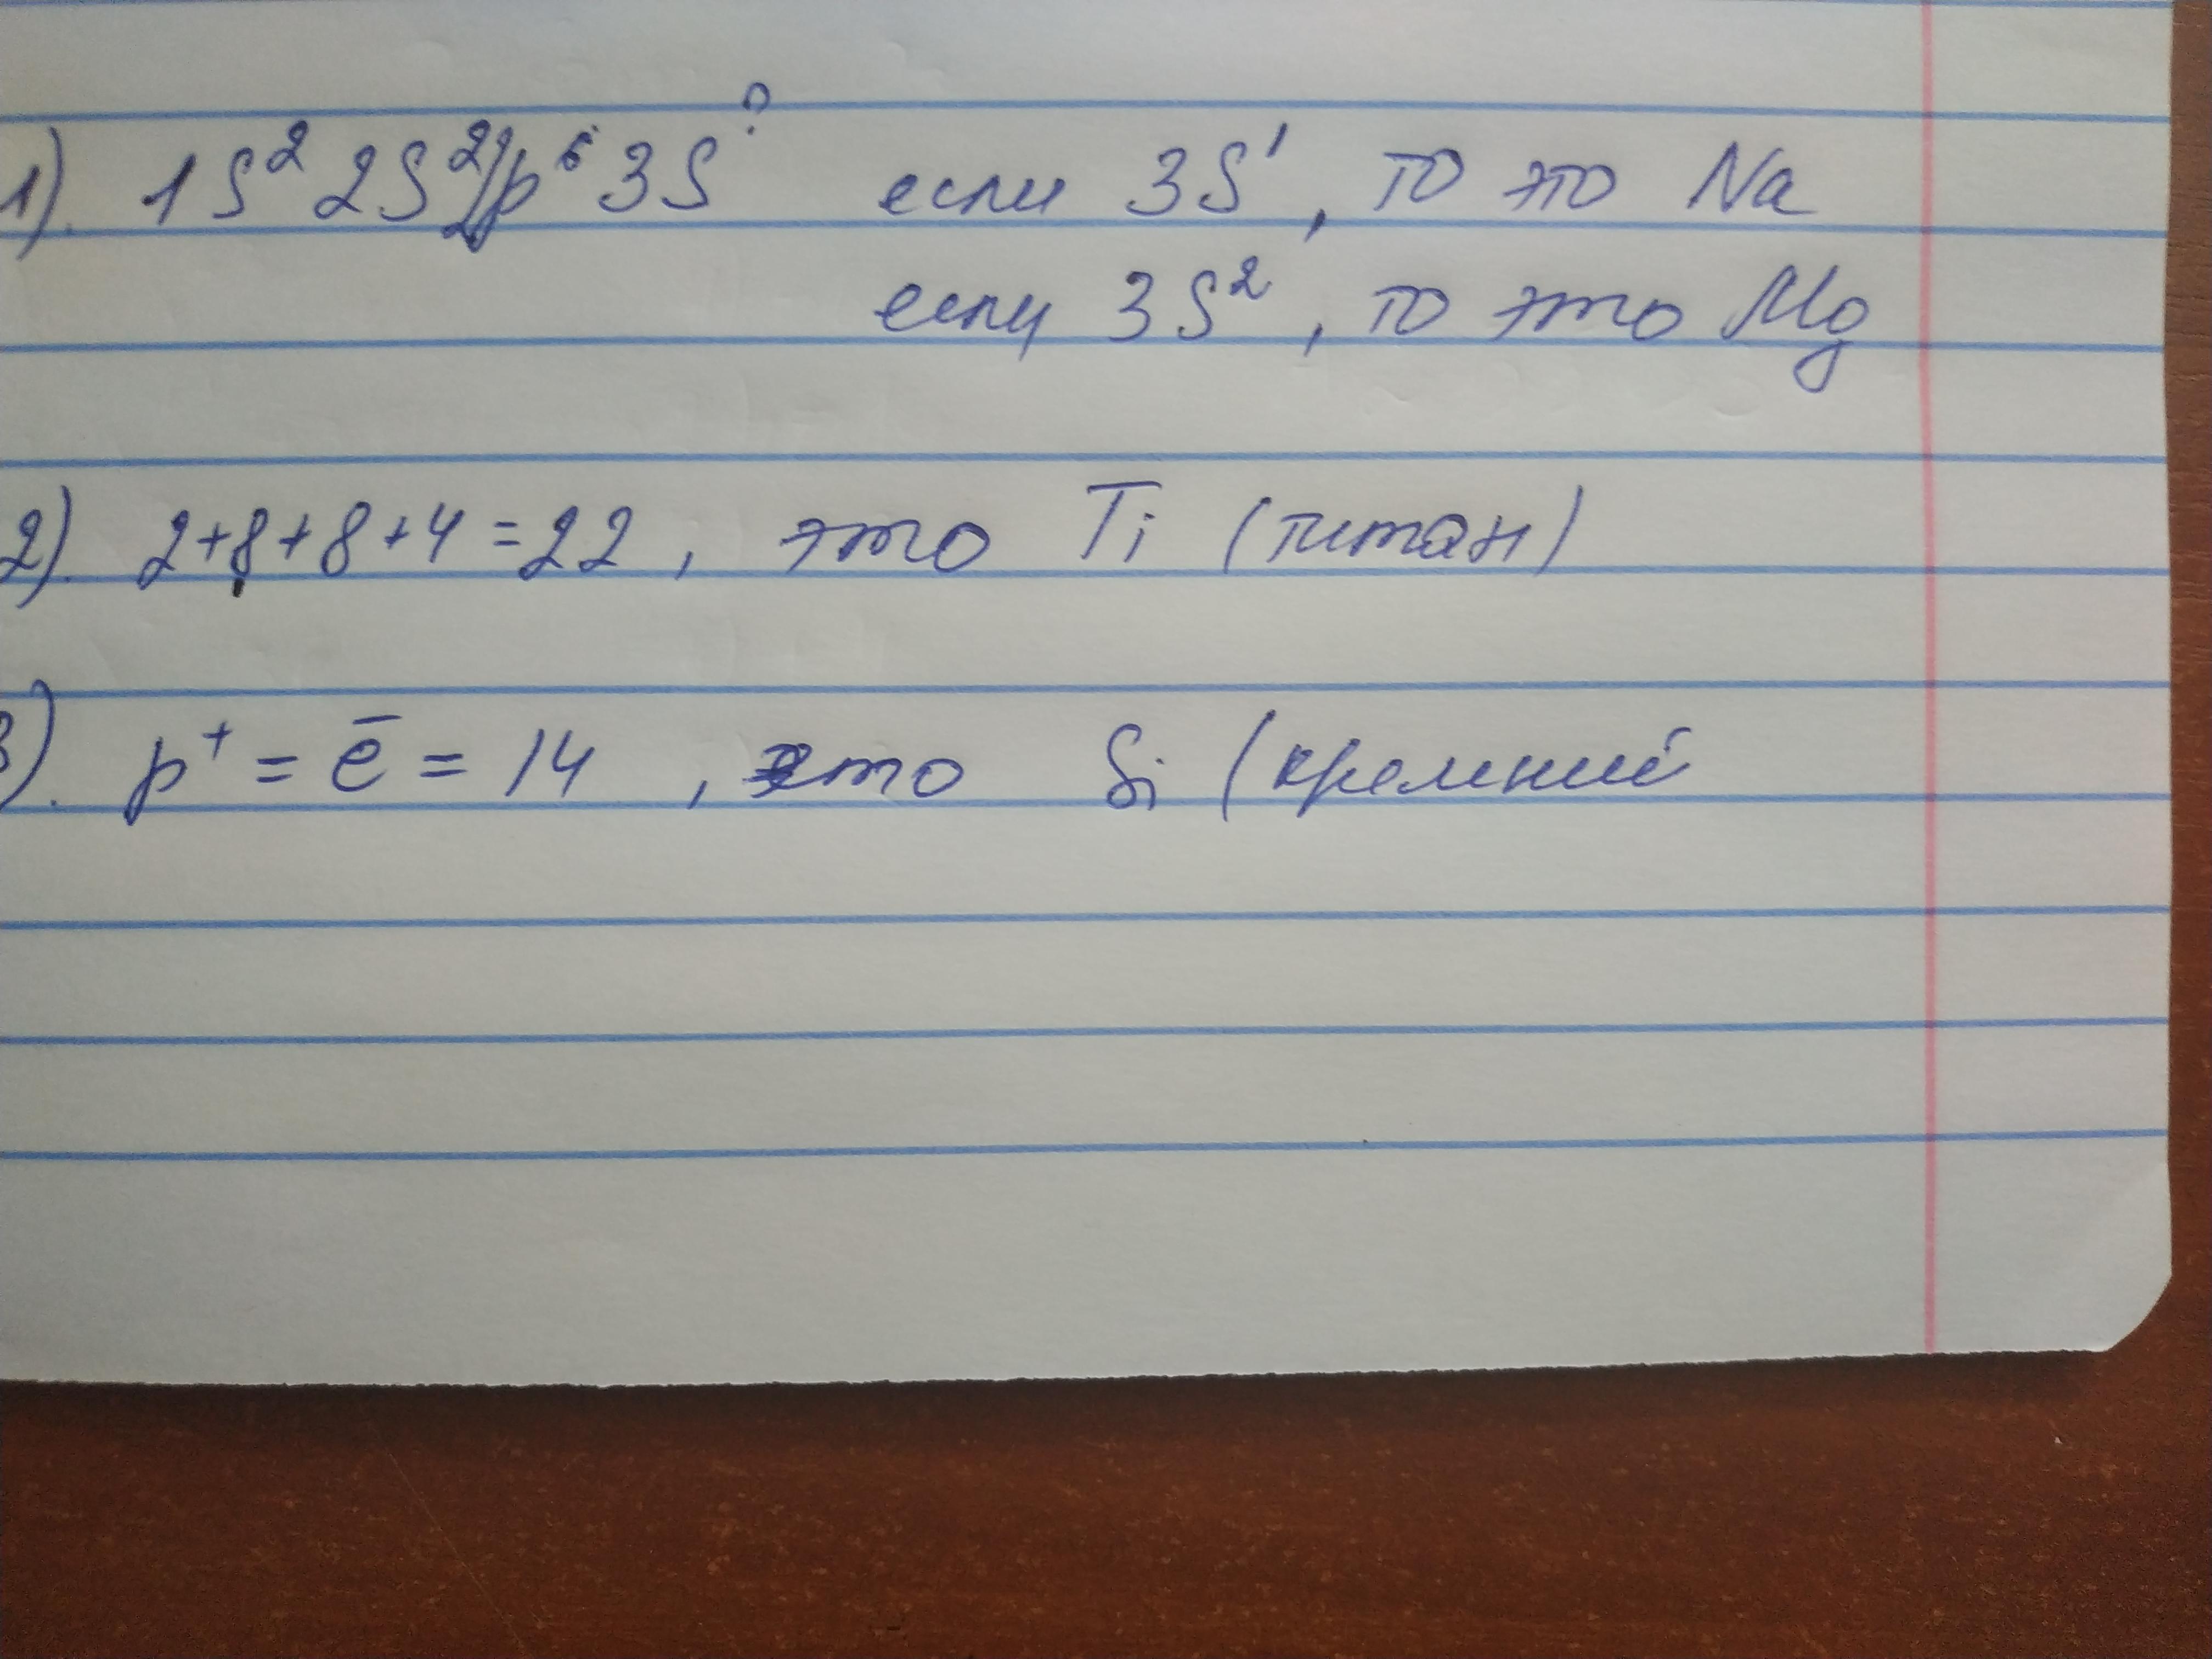 1). 1S² 2S²2p⁶ 3S? если 3S¹, то это Na
если 3S², то это Mg
2). 2+8+8+4=22, это Ti (титан)
3). p⁺ = e̅ = 14, это Si (кремний